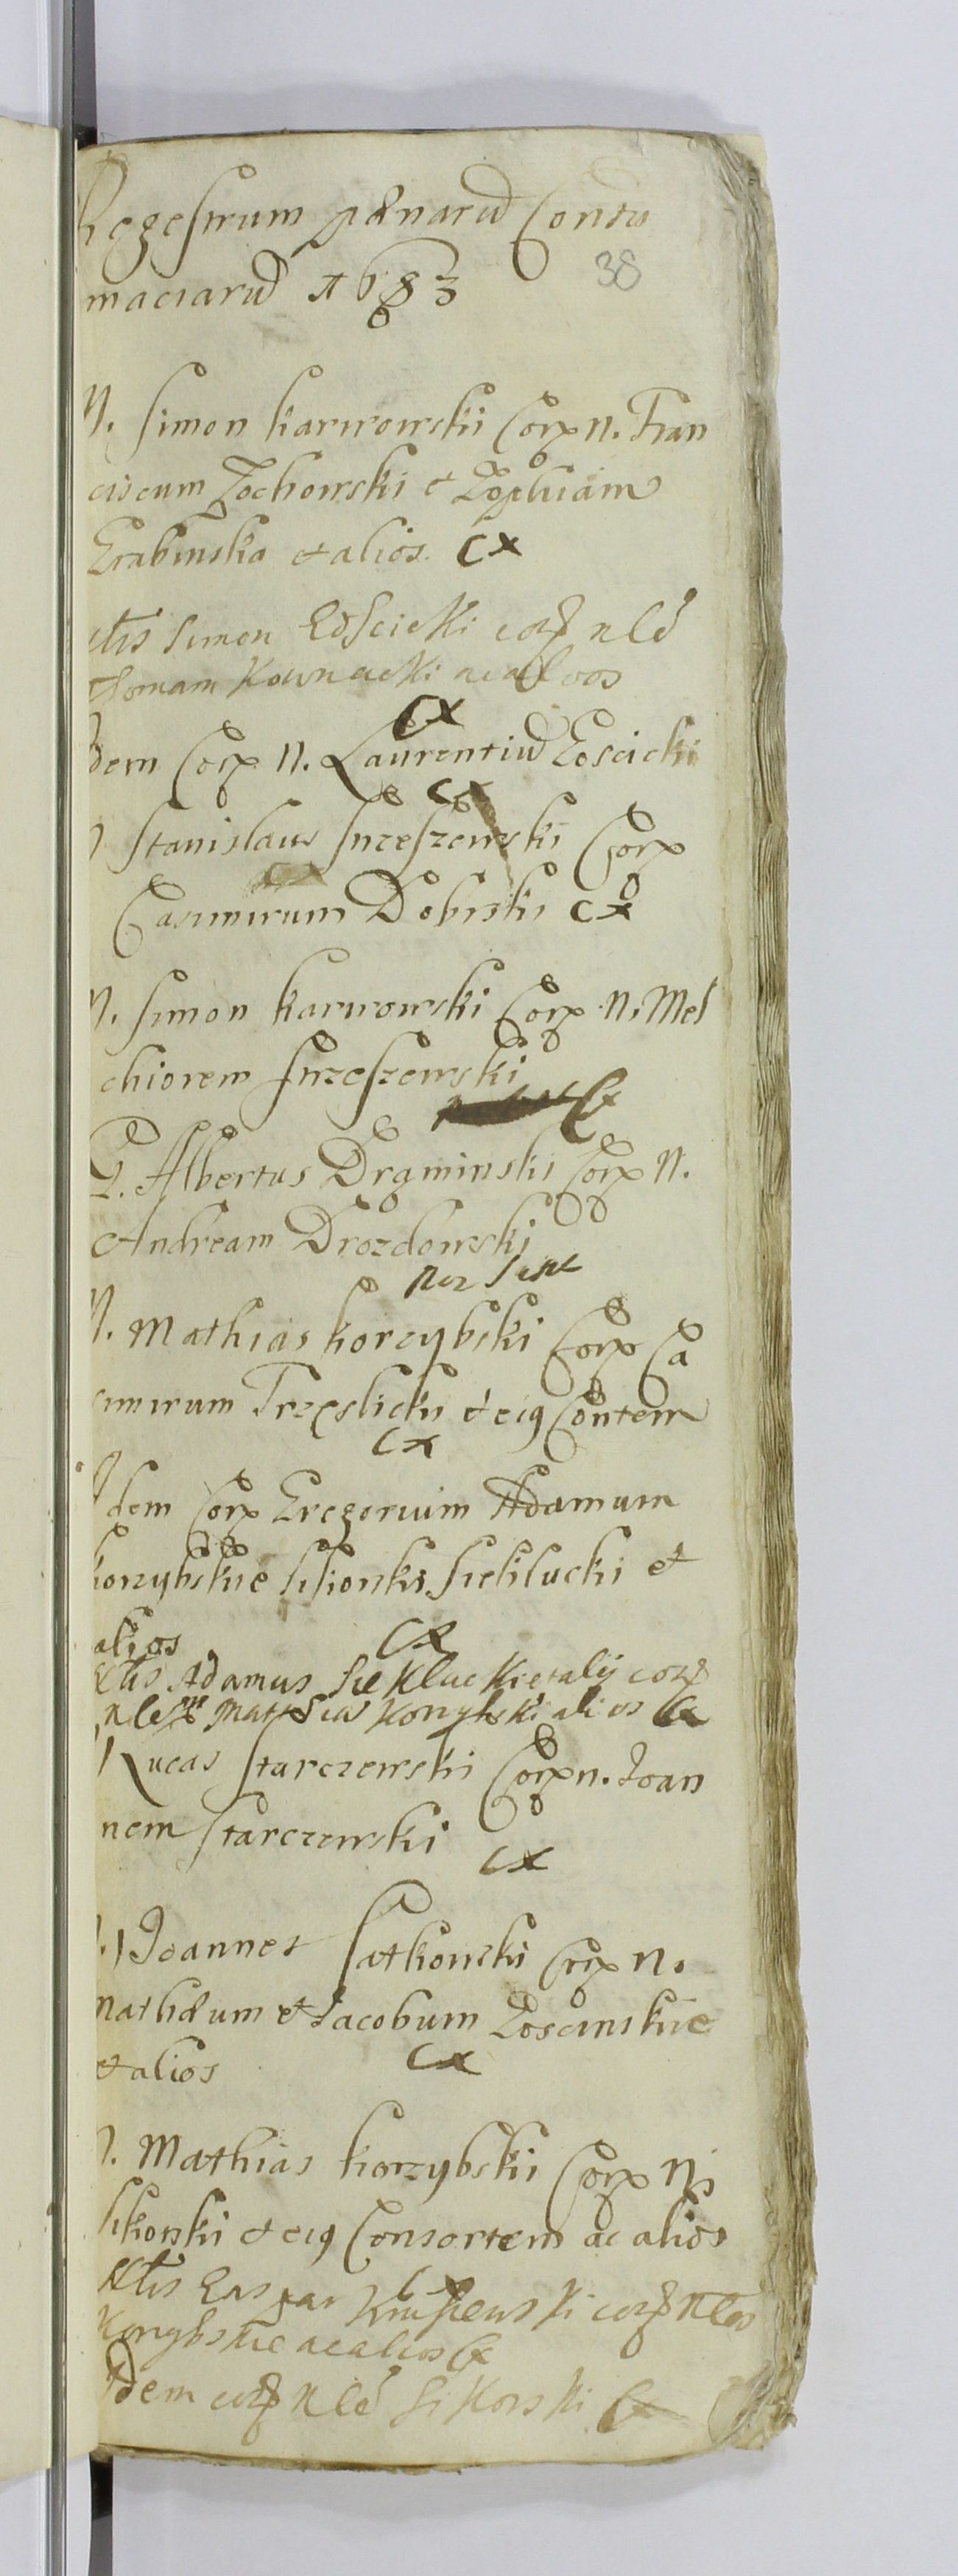 Regestrum pænarū Contu
maciarū 1683
38
N. Simon Karwowski Corp N. Fran
ciscum Zochowski et Zophiam
Grabinska et alios. Cx
Simon Łoscicki corp nlē
Thomam Kownacki ac alios
Cx
Idem Corp N. Laurentiū Łoscicki
Cx
N Stanislaus Srzeszewski Corp
Casimirum Dobrski Cx
N. Simon Karwowski Corp N. Mel
chiorem Srzeszewski
Cx
G. Albertus Draminski Corp N.
Andream Drozdowski
N. Mathias Korzybski Corp Ca
simirum Trzeslicki et eig Contem
Cx
Idem Corp Gregorium Adamum
Korzybskie Sikorski Sieklucki et
alios Cx
Adamus Siekluckietalij corp
Korzybski alios Cx
Lucas Starczewski Corp n. Joan
nem Starczewski
Cx
N. Joannes Satkowski Corp N.
Mathæum et Jacobum Łoscinskie
et alios Cx
N. Mathias Korzybski Corp N.
Sikorski et eig Consortem ac alios
Cx
Gaspar Krupewski corp nlos
Korzybskie ac alios Cx
Idem corp nlē Sikorski Cx